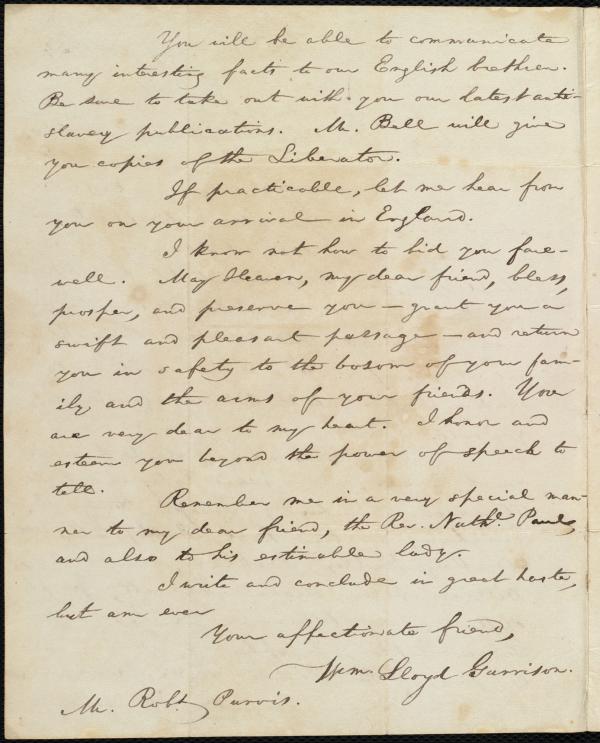 You will be able to communicate
many interesting facts to our English brethren.
Be sure to take out with you our latest anti-
slavery publications. Mr. Bell will give
you copies of the Liberator.
If practicable, let me hear from
you on your arrival in England.
I know not how to bid you fare-
well. May Heaven, my dear friend, bless,
prosper, and preserve you — grant you a
swift and pleasant passage — and return
you in safety to the bosom of your fam-
ily and the arms of your friends. You
are very dear to my heart. I honor and
esteem you beyond the power of speech to
tell.
Remember me in a very special man-
ner to my dear friend, the Rev. Nathl. Paul,
and also to his estimable lady.
I write and conclude in great haste,
but am ever
Your affectionate friend,
Wm. Lloyd Garrison.
Mr. Robt. Purvis.